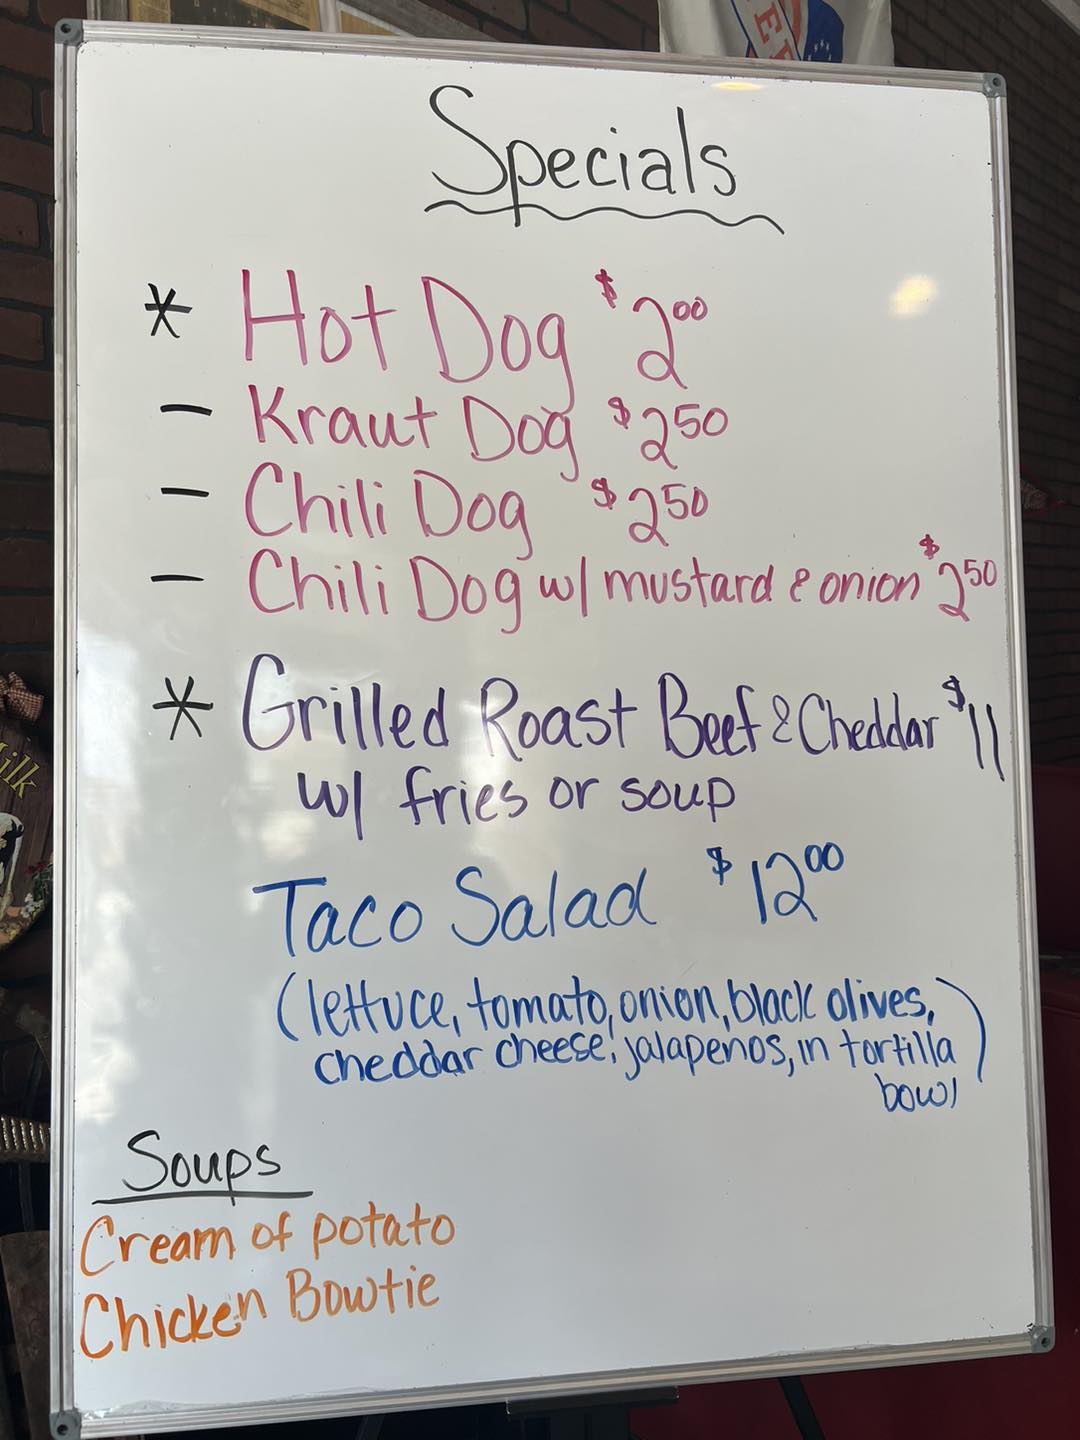 Specials
* Hot Dog $2.00
- Kraut Dog $2.50
- Chili Dog $2.50
- Chili Dog w/ mustard & onion $2.50
* Grilled Roast Beef & Cheddar $11
w/ fries or soup
Taco Salad $12.00
(lettuce, tomato, onion, black olives,
cheddar cheese, jalapenos, in tortilla
bowl)
Soups
Cream of potato
Chicken Bowtie